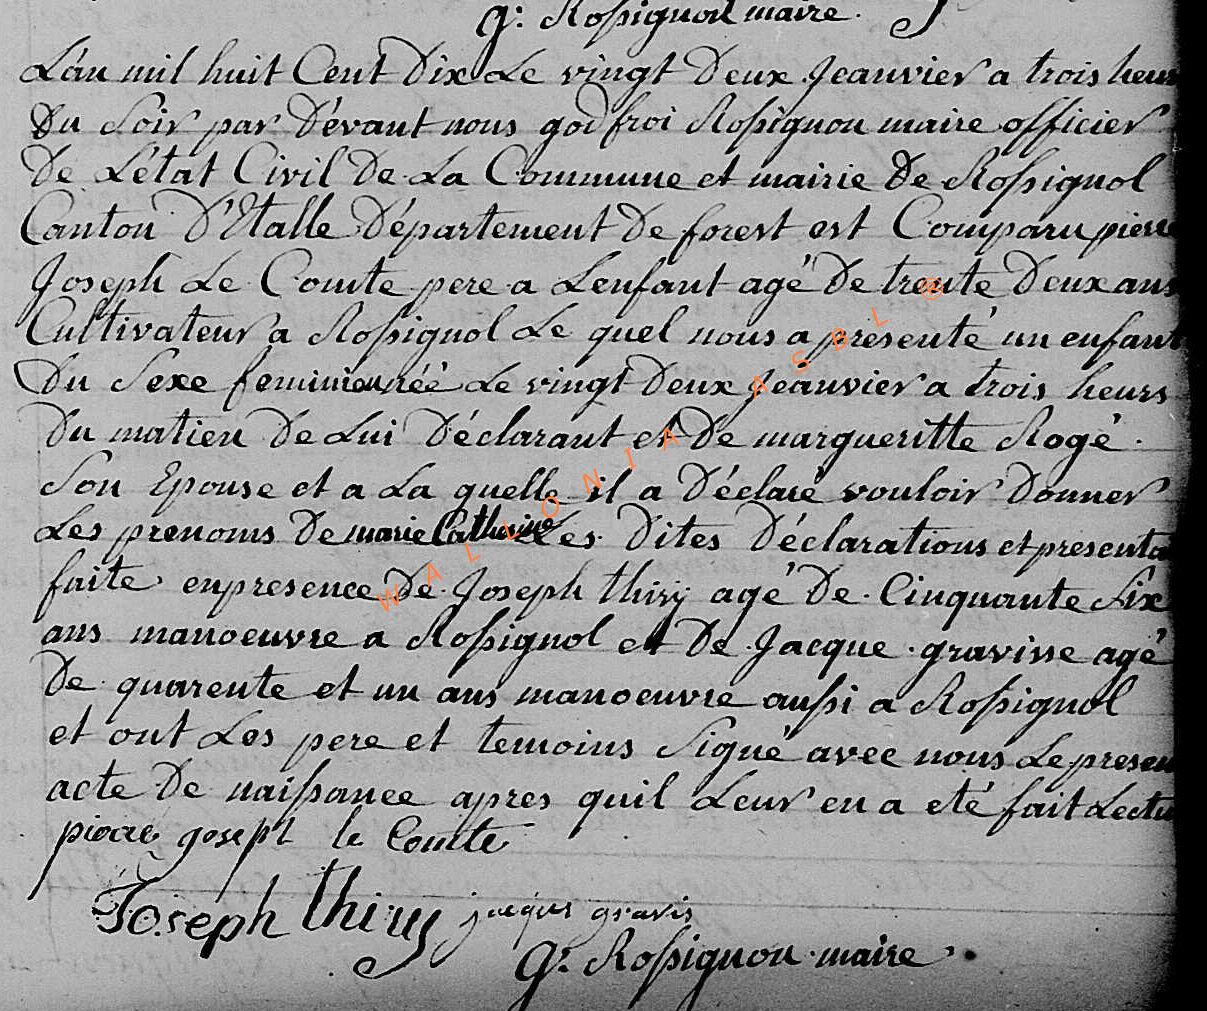 g: Rossignon maire.
L'an mil huit Cent Dix Le vingt Deux Jeanvier a trois heur
Du Soir par Dévant nous godfroi Rossignon maire officier
De L'état Civil De La Commune et mairie De Rossignol
Canton D'Etalle Département De forest est Comparu pierre
Joseph Le Comte pere a Lenfant agé De trente Deux ans
Cultivateur a Rossignol Le quel nous a présenté un enfant
Du Sexe feminien néé Le vingt Deux Jeanvier a trois heurs
Du matien De Lui Déclarant et De margueritte Rogé.
Son Epouse et a La quelle il a Déclaré vouloir Donner
Les prenoms De marie Catherine Les Dites Déclarations et presenta
faite enpresence De Joseph thiry agé De Cinquante Six
ans manoeuvre a Rossignol et De Jacque gravisse agé
De quarente et un ans manoeuvre aussi a Rossignol
et ont Les pere et temoins Signé avec nous Le presen
acte De naissance apres quil Leur en a eté fait Lectu
pierre joseph le Comte
Joseph thiry jacques gravis
g: Rossignon maire
WALLONIA ASBL ®